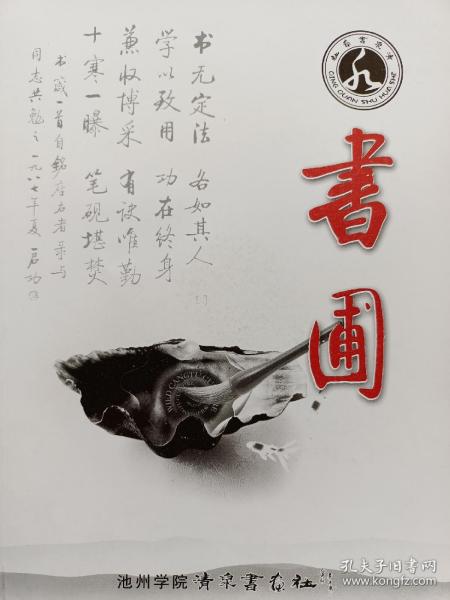 书无定法 各如其人
学以致用 功在终身
兼收博采 有诀唯勤
十寒一曝 笔砚堪焚
书箴一首自铭座右者录与
同志共勉之 一九八七年夏 启功
清泉书画社
QING QUAN SHU HUA SHE
書圃
池州学院 清泉書画社
孔夫子旧书网
www.kongfz.com